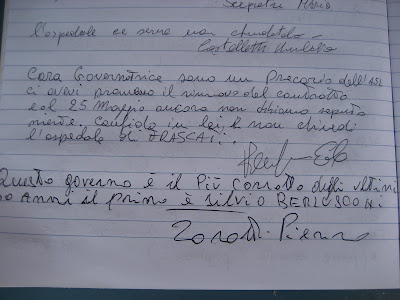 Mario
l'ospedale ce serve non chiudetelo -
Cara Governatrice sono un Precario dell'ASL
ci avevi promesso il rinnovo del contratto
e al 25 Maggio ancora non abbiamo saputo
niente. Confido in lei, e non chiudi
l'ospedale di FRASCATI.
Questo governo è il Più corrotto degli ultimi
anni il primo è SILVIO BERLUSCONI